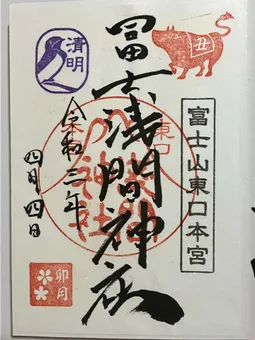 丑
富士山東口本宮
冨士浅間神社
東口
清明
令和三年
四月四日
卯月